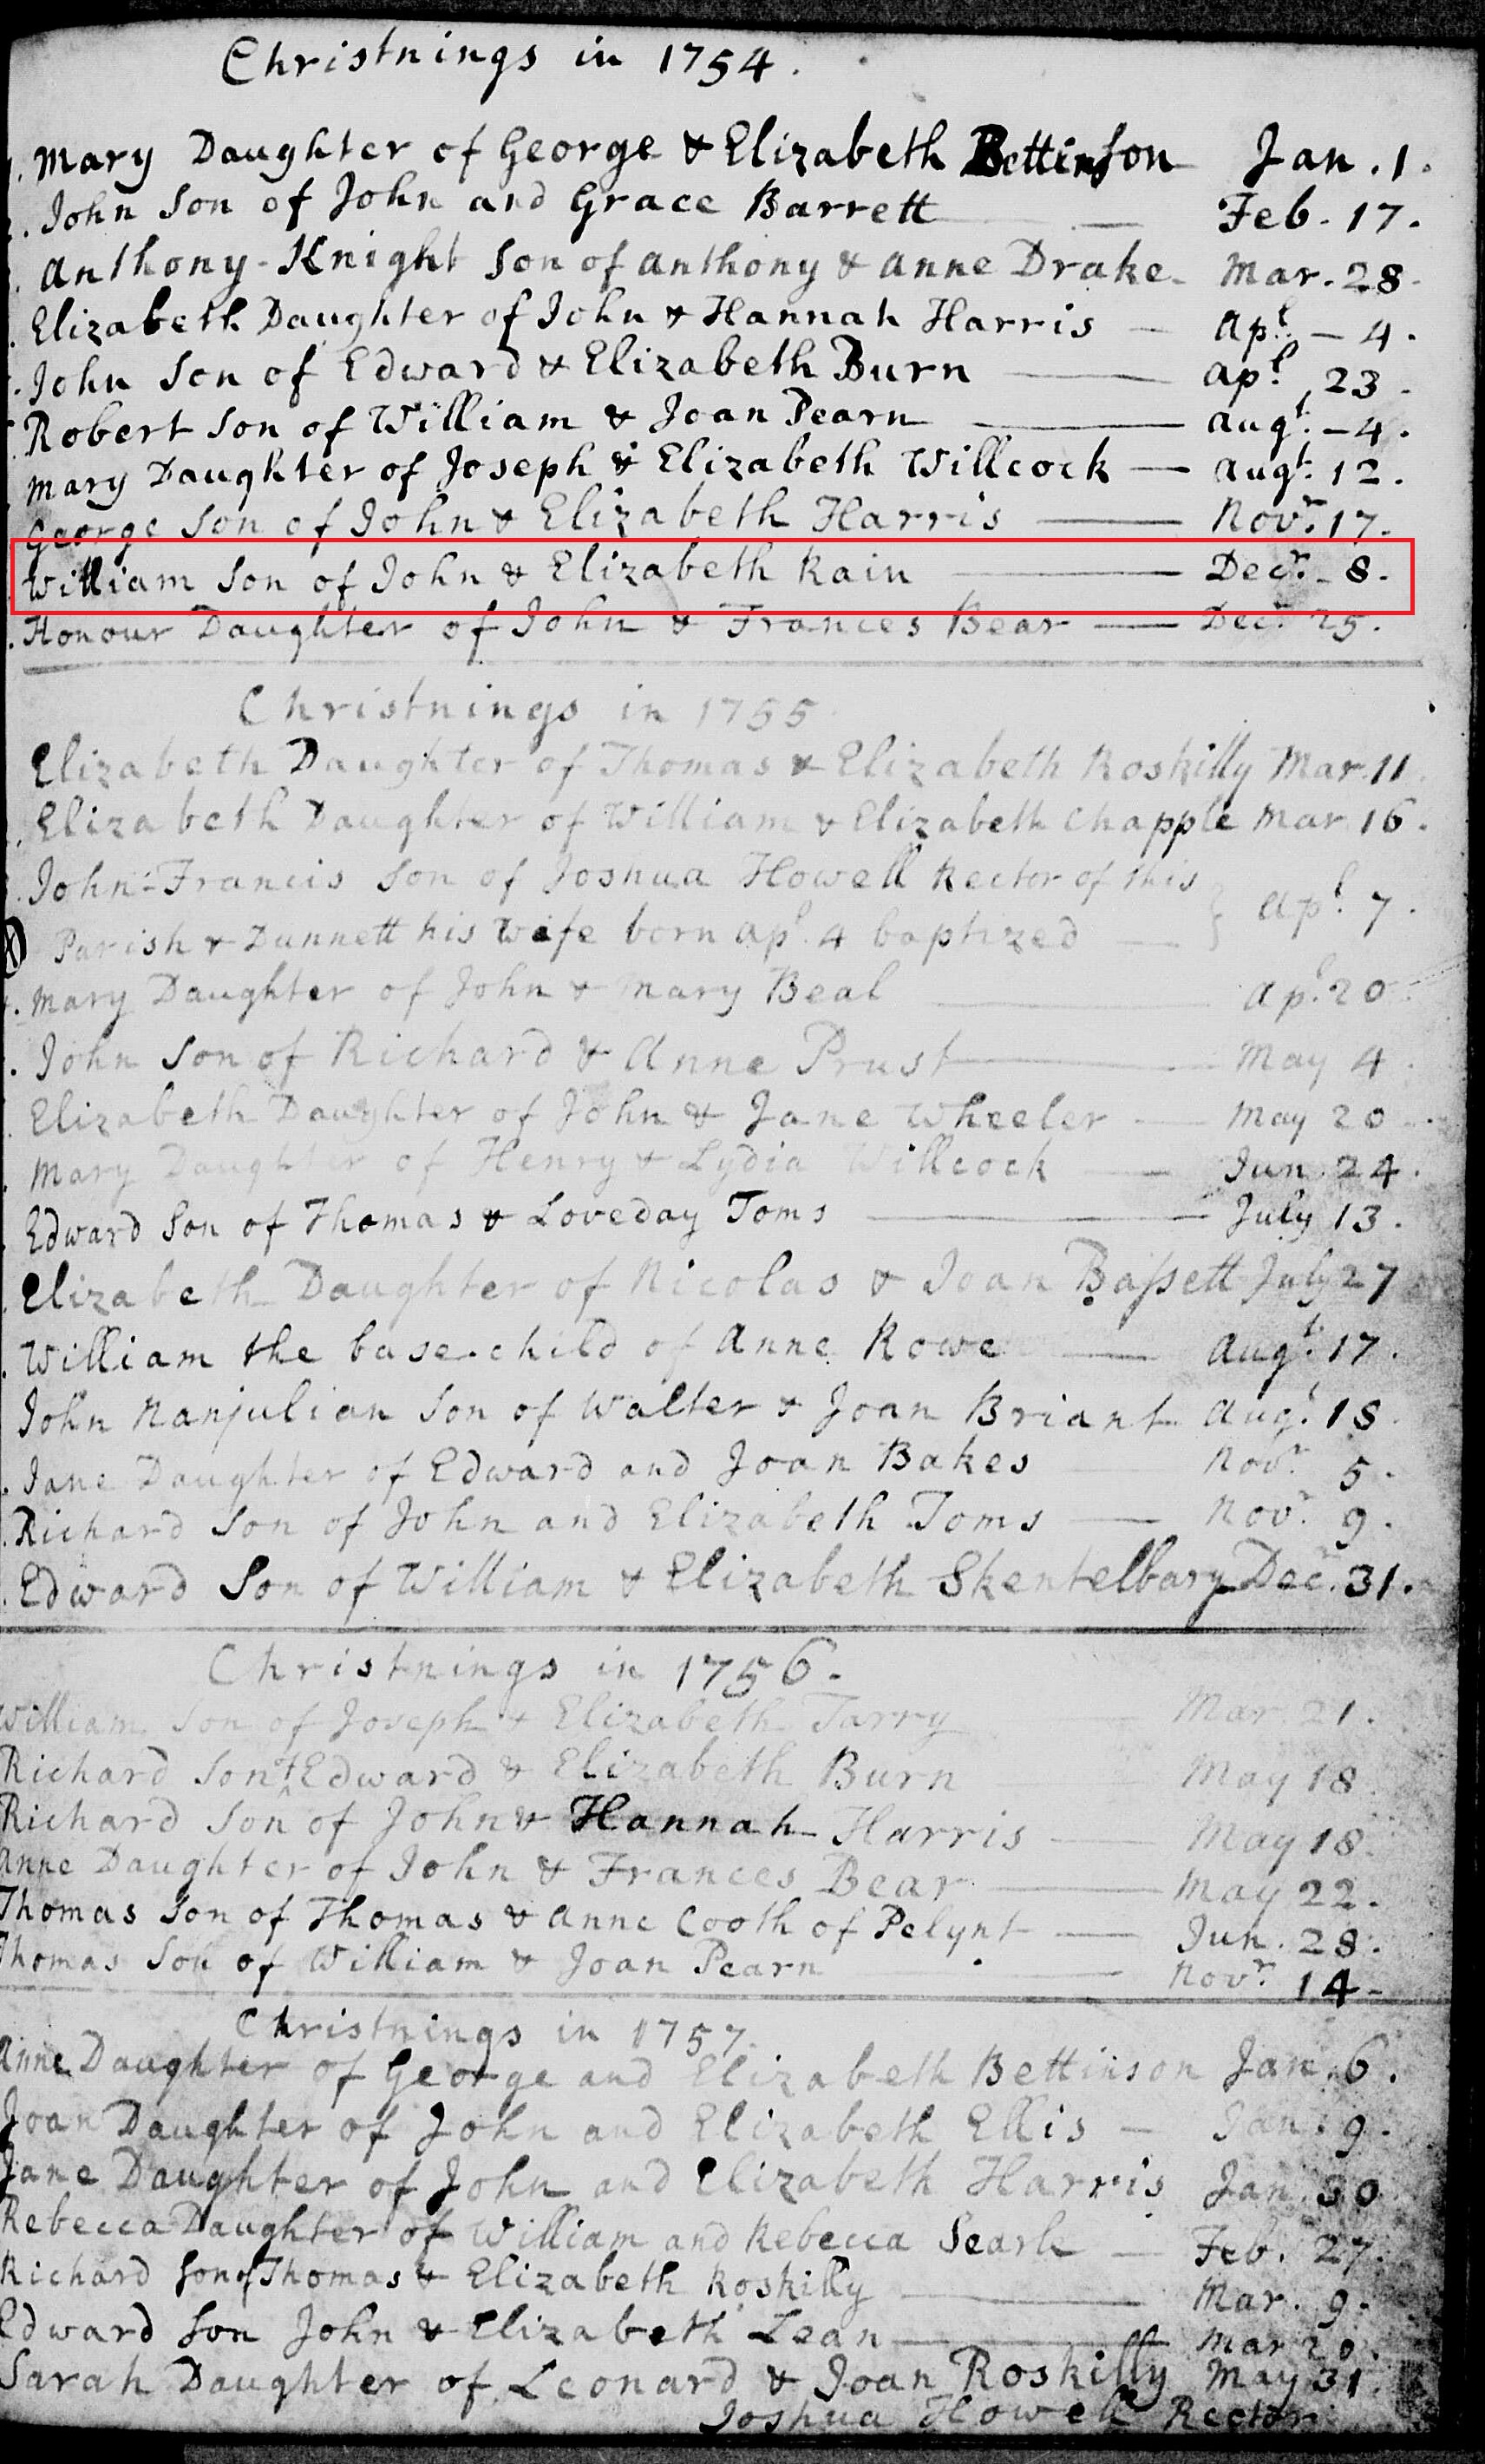 Christnings in 1754.
Mary Daughter of George & Elizabeth Bettinson Jan. 1.
John Son of John and Grace Barrett — Feb. 17.
Anthony-Knight Son of Anthony & Anne Drake - Mar. 28.
Elizabeth Daughter of John & Hannah Harris — Apl. — 4.
John Son of Edward & Elizabeth Burn — Apl. 23.
Robert Son of William & Joan Pearn — Augt. — 4.
Mary Daughter of Joseph & Elizabeth Willcock — Augt. 12.
George Son of John & Elizabeth Harris — Novr. 17.
William Son of John & Elizabeth Rain — Decr. - 8.
Honour Daughter of John & Frances Bear — Decr. 25.
Christnings in 1755
Elizabeth Daughter of Thomas & Elizabeth Roskilly Mar. 11.
Elizabeth Daughter of William & Elizabeth Chapple Mar. 16.
John-Francis Son of Joshua Howell Rector of this
Parish & Dunnett his Wife born Apl. 4 baptized — } Apl. 7.
Mary Daughter of John & Mary Beal — Apl. 20.
John Son of Richard & Anne Prust — May 4.
Elizabeth Daughter of John & Jane Wheeler — May 20
Mary Daughter of Henry & Lydia Willcock — Jun. 24.
Edward Son of Thomas & Loveday Toms — July 13.
Elizabeth Daughter of Nicolas & Joan Baſsett July 27
William the base-child of Anne Rowe — Augt. 17.
John Nanjulian Son of Walter & Joan Briant Augt. 18.
Jane Daughter of Edward and Joan Bakes — Novr. 5.
Richard Son of John and Elizabeth Toms — Novr. 9.
Edward Son of William & Elizabeth Skentelbary Decr. 31.
Christnings in 1756.
William Son of Joseph & Elizabeth Tarry — Mar. 21.
Richard Son ^of Edward & Elizabeth Burn — May 18.
Richard Son of John & Hannah Harris — May 18.
Anne Daughter of John & Frances Bear — May 22.
Thomas Son of Thomas & Anne Cooth of Pelynt — Jun. 28.
Thomas Son of William & Joan Pearn — Novr. 14.
Christnings in 1757.
Anne Daughter of George and Elizabeth Bettinson Jan. 6.
Joan Daughter of John and Elizabeth Ellis — Jan. 9.
Jane Daughter of John and Elizabeth Harris Jan. 30
Rebecca Daughter of William and Rebecca Searle — Feb. 27.
Richard Son of Thomas & Elizabeth Roskilly — Mar. 9.
Edward Son John & Elizabeth Lean — Mar 20.
Sarah Daughter of Leonard & Joan Roskilly May 31.
Joshua Howell Rector.